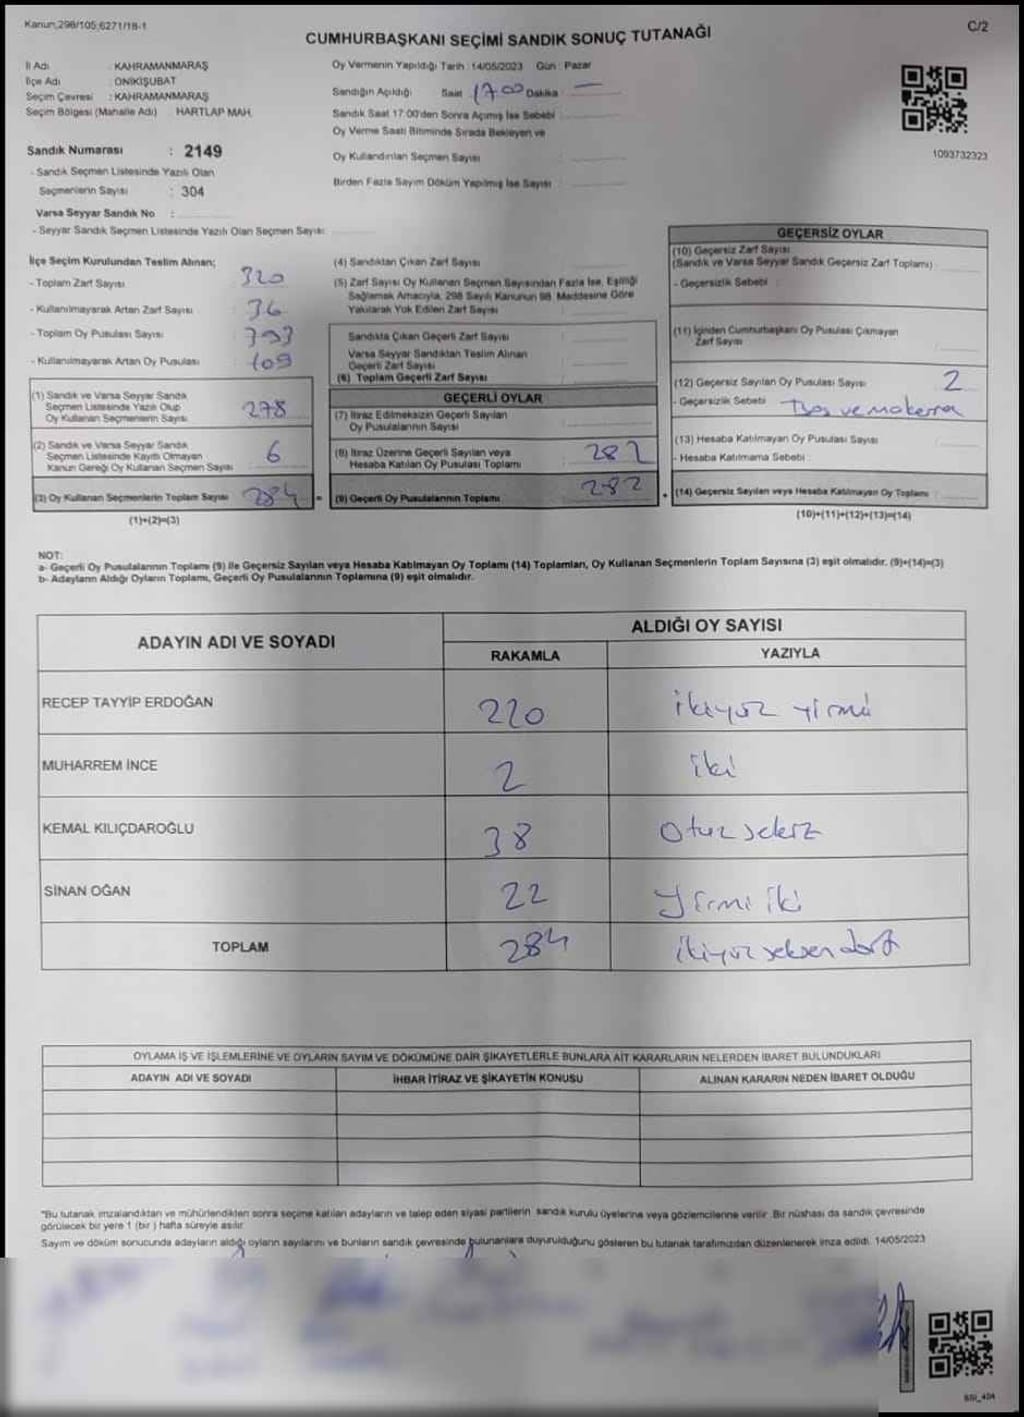 Kanun;298/105;6271/18-1
C/2
CUMHURBAŞKANI SEÇİMİ SANDIK SONUÇ TUTANAĞI
İl Adı : KAHRAMANMARAŞ
İlçe Adı : ONİKİŞUBAT
Seçim Çevresi : KAHRAMANMARAŞ
Seçim Bölgesi (Mahalle Adı) HARTLAP MAH.
Sandık Numarası : 2149
- Sandık Seçmen Listesinde Yazılı Olan
Seçmenlerin Sayısı : 304
Varsa Seyyar Sandık No :
- Seyyar Sandık Seçmen Listesinde Yazılı Olan Seçmen Sayısı
Oy Vermenin Yapıldığı Tarih : 14/05/2023 Gün : Pazar
Sandığın Açıldığı Saat 17.00 Dakika —
Sandık Saat 17:00'den Sonra Açımış İse Sebebi
Oy Verme Saati Bitiminde Sırada Bekleyen ve
Oy Kullandırılan Seçmen Sayısı
Birden Fazla Sayım Döküm Yapılmış İse Sayısı
1093732323
İlçe Seçim Kurulundan Teslim Alınan;
- Toplam Zarf Sayısı 320
- Kullanılmayarak Artan Zarf Sayısı 36
- Toplam Oy Pusulası Sayısı 393
- Kullanılmayarak Artan Oy Pusulası 109
(1) Sandık ve Varsa Seyyar Sandık
Seçmen Listesinde Yazılı Olup
Oy Kullanan Seçmenlerin Sayısı 278
(2) Sandık ve Varsa Seyyar Sandık
Seçmen Listesinde Kayıtlı Olmayan
Kanun Gereği Oy Kullanan Seçmen Sayısı 6
(3) Oy Kullanan Seçmenlerin Toplam Sayısı 284 =
(1)+(2)=(3)
(4) Sandıktan Çıkan Zarf Sayısı
(5) Zarf Sayısı Oy Kullanan Seçmen Sayısından Fazla İse, Eşitliği
Sağlamak Amacıyla, 298 Sayılı Kanunun 98. Maddesine Göre
Yakılarak Yok Edilen Zarf Sayısı
Sandıkta Çıkan Geçerli Zarf Sayısı
Varsa Seyyar Sandıktan Teslim Alınan
Geçerli Zarf Sayısı
(6) Toplam Geçerli Zarf Sayısı
GEÇERLİ OYLAR
(7) İtiraz Edilmeksizin Geçerli Sayılan
Oy Pusulalarının Sayısı
(8) İtiraz Üzerine Geçerli Sayılan veya
Hesaba Katılan Oy Pusulası Toplamı 282
(9) Geçerli Oy Pusulalarının Toplamı 282 +
GEÇERSİZ OYLAR
(10) Geçersiz Zarf Sayısı
(Sandık ve Varsa Seyyar Sandık Geçersiz Zarf Toplamı)
- Geçersizlik Sebebi :
(11) İçinden Cumhurbaşkanı Oy Pusulası Çıkmayan
Zarf Sayısı
(12) Geçersiz Sayılan Oy Pusulası Sayısı 2
- Geçersizlik Sebebi : Boş ve mükerrer
(13) Hesaba Katılmayan Oy Pusulası Sayısı
- Hesaba Katılmama Sebebi :
(14) Geçersiz Sayılan veya Hesaba Katılmayan Oy Toplamı
(10)+(11)+(12)+(13)=(14)
NOT:
a- Geçerli Oy Pusulalarının Toplamı (9) ile Geçersiz Sayılan veya Hesaba Katılmayan Oy Toplamı (14) Toplamları, Oy Kullanan Seçmenlerin Toplam Sayısına (3) eşit olmalıdır. (9)+(14)=(3)
b- Adayların Aldığı Oyların Toplamı, Geçerli Oy Pusulalarının Toplamına (9) eşit olmalıdır.
ADAYIN ADI VE SOYADI
ALDIĞI OY SAYISI
RAKAMLA YAZIYLA
RECEP TAYYİP ERDOĞAN 220 ikiyüz yirmi
MUHARREM İNCE 2 iki
KEMAL KILIÇDAROĞLU 38 Otuz sekiz
SİNAN OĞAN 22 Yirmi iki
TOPLAM 284 ikiyüz seksen dört
OYLAMA İŞ VE İŞLEMLERİNE VE OYLARIN SAYIM VE DÖKÜMÜNE DAİR ŞİKAYETLERLE BUNLARA AİT KARARLARIN NELERDEN İBARET BULUNDUKLARI
ADAYIN ADI VE SOYADI İHBAR İTİRAZ VE ŞİKAYETİN KONUSU ALINAN KARARIN NEDEN İBARET OLDUĞU
*Bu tutanak imzalandıktan ve mühürlendikten sonra seçime katılan adayların ve talep eden siyasi partilerin sandık kurulu üyelerine veya gözlemcilerine verilir. Bir nüshası da sandık çevresinde
görülecek bir yere 1 (bir ) hafta süreyle asılır.
Sayım ve döküm sonucunda adayların aldığı oyların sayılarını ve bunların sandık çevresinde bulunanlara duyurulduğunu gösteren bu tutanak tarafımızdan düzenlenerek imza edildi. 14/05/2023